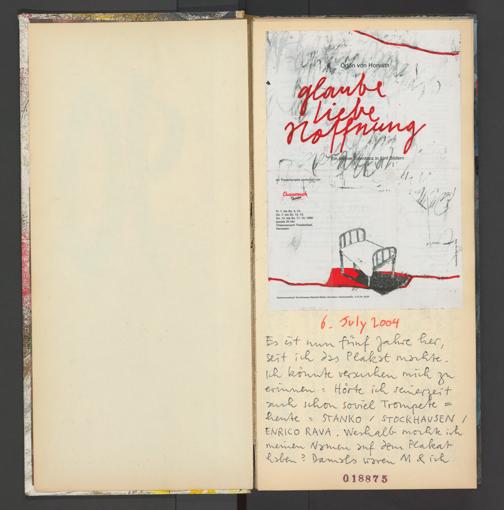 Ödön von Horváth
glaube
liebe
hoffnung
Ein kleiner Totentanz in fünf Bildern
6. July 2004
Es ist nun fünf Jahre her,
seit ich das Plakat machte.
Ich könnte versuchen mich zu
erinnern = Hörte ich seinerzeit
auch schon soviel Trompete =
heute = STANKO / STOCKHAUSEN /
ENRICO RAVA. Weshalb mochte ich
meinen Namen auf dem Plakat
haben? Damals waren M & ich
018875